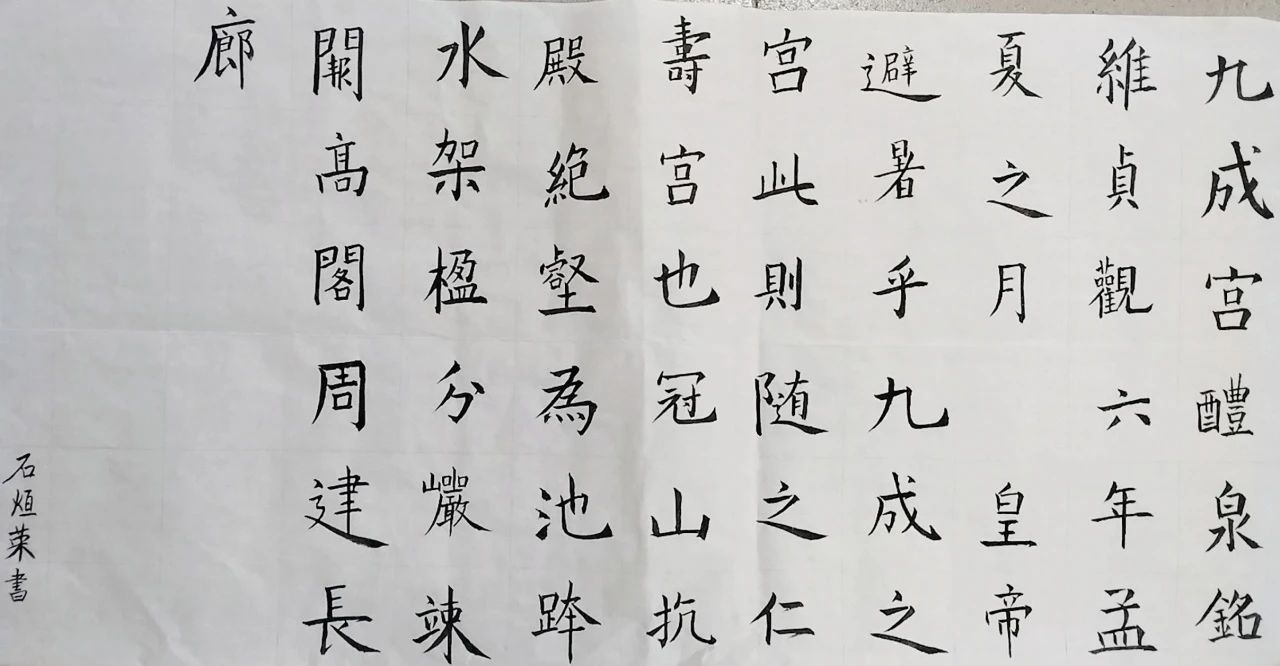 九成宫醴泉銘
維貞觀六年孟
夏之月 皇帝
避暑乎九成之
宫此則随之仁
壽宫也冠山抗
殿絶壑為池跨
水架楹分巖竦
闕髙閣周建長
廊
石烜書